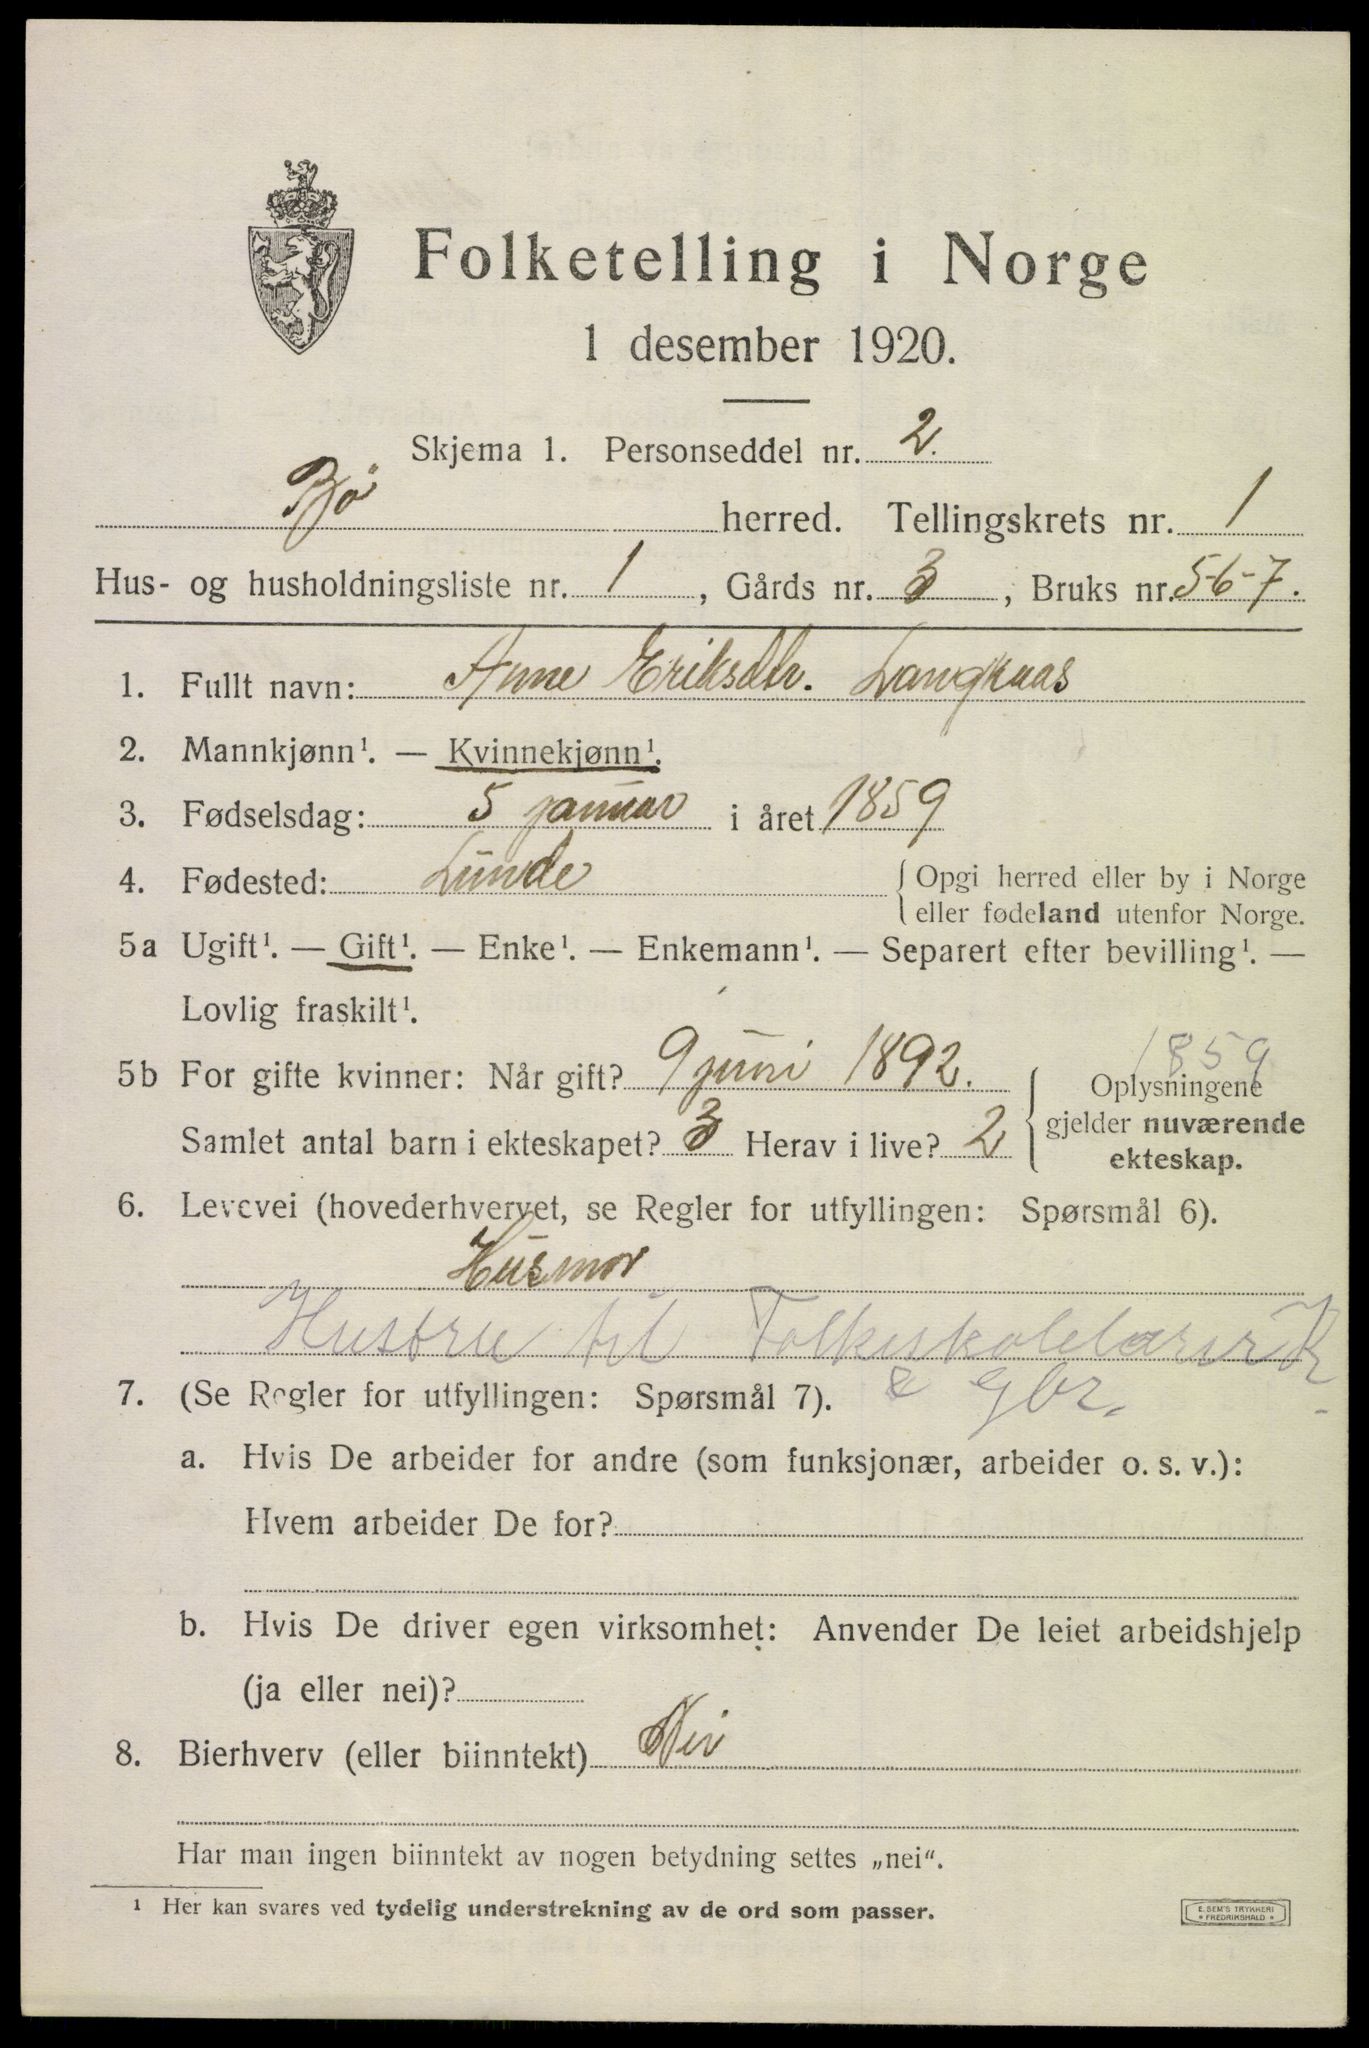 Folketelling i Norge
1 desember 1920.
Skjema 1. Personseddel nr. 2.
Bø herred. Tellingskrets nr. 1
Hus- og husholdningsliste nr. 1, Gårds nr. 3, Bruks nr. 5-6-7.
1. Fullt navn: Anne Eriksdtr. Langkaas
2. Mannkjønn¹. — Kvinnekjønn¹.
3. Fødselsdag: 5 januar i året 1859
4. Fødested: Lunde { Opgi herred eller by i Norge
eller fødeland utenfor Norge.
5a Ugift¹. — Gift¹. — Enke¹. — Enkemann¹. — Separert efter bevilling¹. —
Lovlig fraskilt¹.
1859
5b For gifte kvinner: Når gift? 9 juni 1892. { Oplysningene
gjelder nuværende
ekteskap.
Samlet antal barn i ekteskapet? 3 Herav i live? 2
6. Levevei (hovederhvervet, se Regler for utfyllingen: Spørsmål 6).
Husmor
Hustru til Folkeskolelærer K
& gbr.
7. (Se Regler for utfyllingen: Spørsmål 7).
a. Hvis De arbeider for andre (som funksjonær, arbeider o. s. v.):
Hvem arbeider De for?
b. Hvis De driver egen virksomhet: Anvender De leiet arbeidshjelp
(ja eller nei)?
8. Bierhverv (eller biinntekt) Nei
Har man ingen biinntekt av nogen betydning settes „nei".
¹ Her kan svares ved tydelig understrekning av de ord som passer.
E. SEM'S TRYKKERI
FREDRIKSHALD